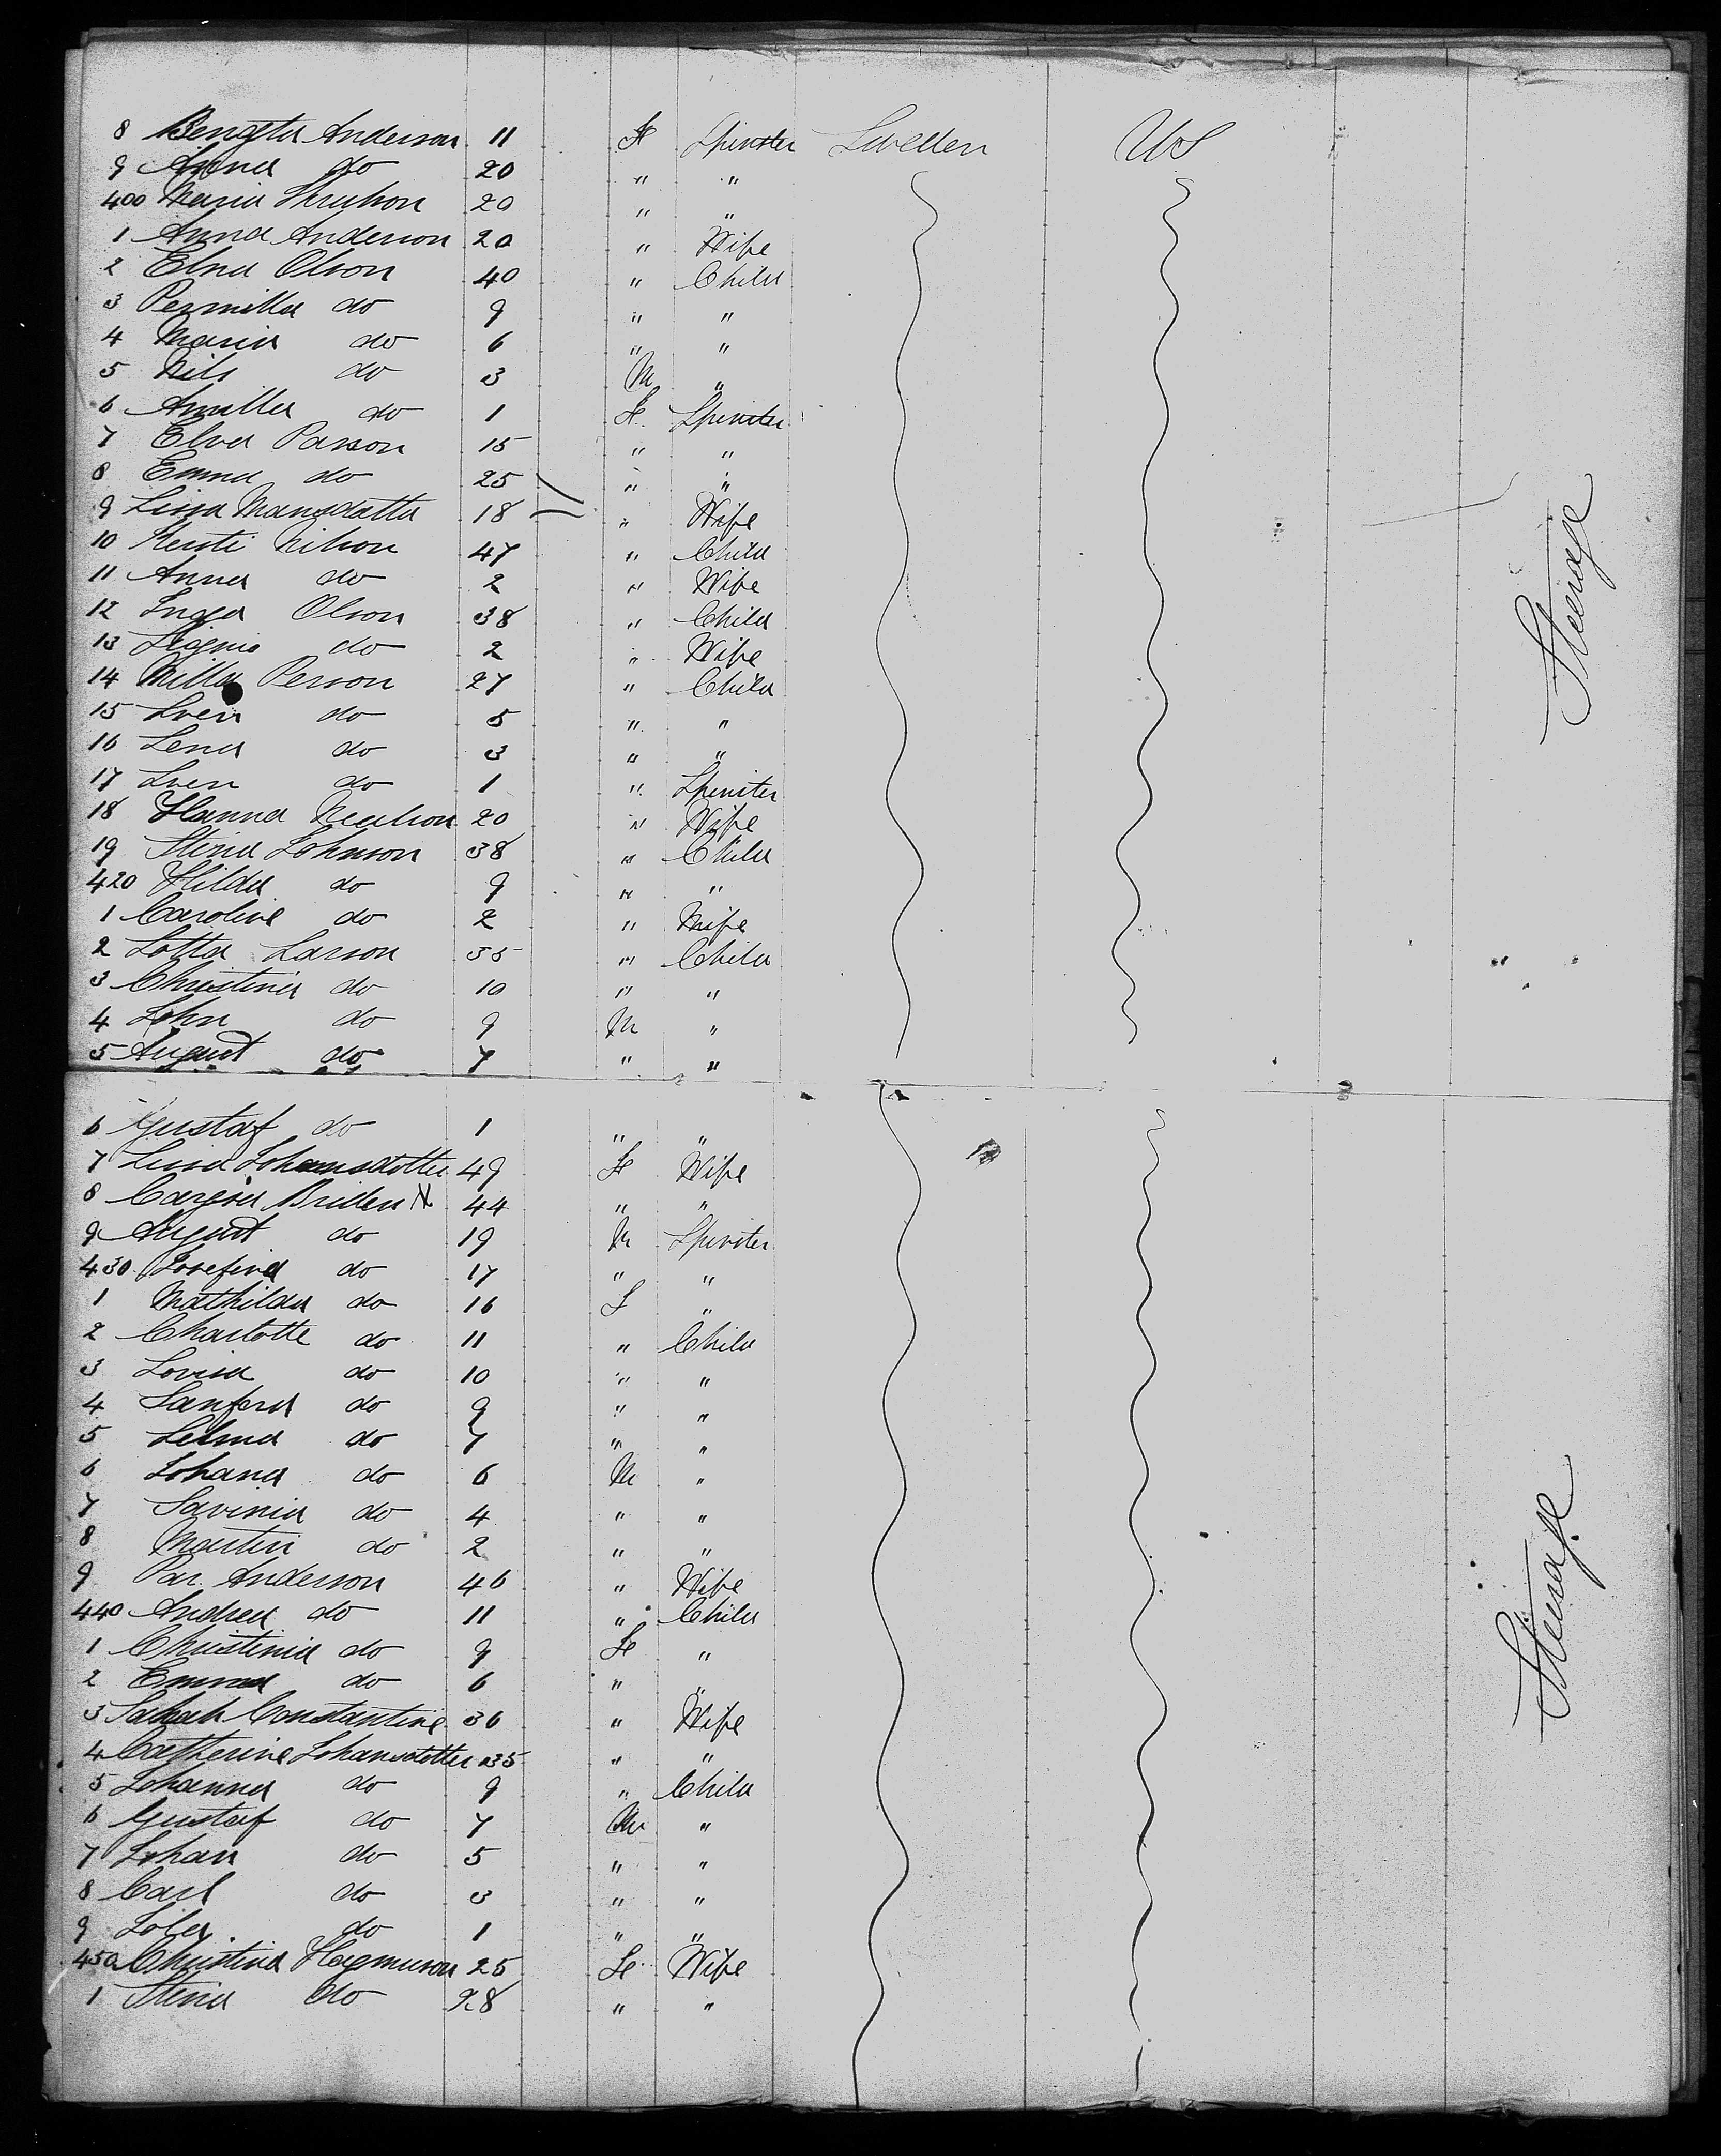 8 Bengta Anderson 11 Fe Spinster Sweden US
9 Anna do 20 " "
400 Maria 20 " "
1 Anna Anderson 20 " Wife
2 Elna Olson 40 " Child
3 Pernilla do 9 " "
4 Maria do 6 " "
5 Nils do 3 M "
6 Amilla do 1 Fe Spinster
7 Elna Parson 15 " "
8 Emma do 25 " "
9 Lina Mansdatter 18 " Wife
10 Kersti Nilson 47 " Child
11 Anna do 2 " Wife
12 Inga Olson 38 " Child
13 do 2 " Wife
14 Milla Person 27 " Child
15 Sven do 5 " "
16 Lena do 3 " "
17 Sven do 1 " Spinster
18 Hanna 20 " Wife
19 Stina Johnson 38 " Child
420 Hilda do 9 " "
1 Caroline do 2 " Wife
2 Lotta Larson 35 " Child
3 Christina do 10 " "
4 John do 9 M "
5 August do 7 " "
Steerage
6 Gustaf do 1 " "
7 Lina Johansdotter 49 Fe Wife
8 44 " "
9 August do 19 M Spinster
430 Josefina do 17 " "
1 Mathilda do 16 F "
2 Charlotte do 11 " Child
3 Lovisa do 10 " "
4 do 9 " "
5 Selma do 7 " "
6 Johana do 6 M "
7 Savinia do 4 " "
8 Martin do 2 " "
9 Par. Anderson 46 " Wife
440 Andrea do 11 " Child
1 Christina do 9 Fe "
2 Emma do 6 " "
3 Sarah Constantine 36 " Wife
4 Catherine Johansdotter 35 " "
5 Johanna do 9 " Child
6 Gustaf do 7 M "
7 Johan do 5 " "
8 Carl do 3 " "
9 do 1 " "
450 Christina Hagmuson 25 Fe Wife
1 Stina do 28 " "
Steerage